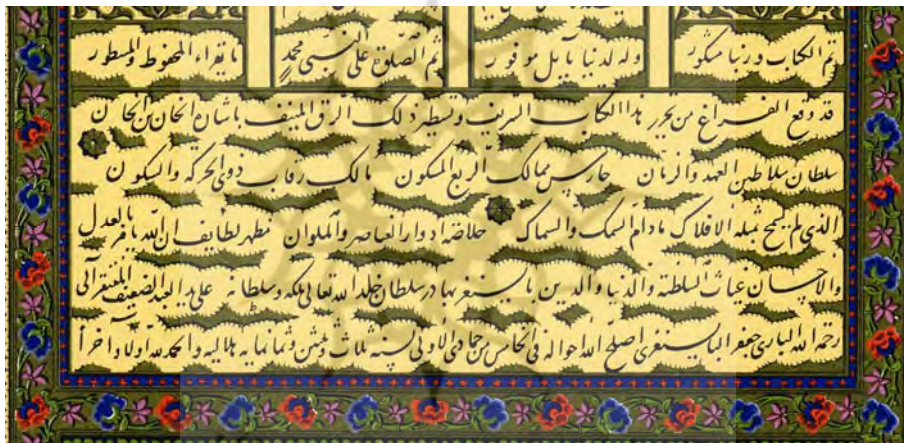 تم الکتاب و ربنا مشکور
وله لدنیا یا بل موفور
ثم الصلوة علی النبی محمد
ما یقراء المحفوظ والمسطور
قد وقع الفراغ من تحریر هذا الکتاب الشریف و تسطیر ذلک الرق المنیف باشارة الخان بن الخان
سلطان سلاطین العهد والزمان حارس ممالک الربع المسکون مالک رقاب ذوی الحرکة والسکون
الذی لم یسمح بمثله الافلاک مادام السمک والسماک خلاصة ادوار العناصر والملوان مظهر لطایف ان الله یامر بالعدل
والاحسان غیاث السلطنة والدنیا والدین بایسنغر بهادر سلطان خلد الله تعالی ملکه وسلطانه علی ید العبد الضعیف المفتقر الی
رحمة الله الباری جعفر البایسنغری اصلح الله احواله فی الخامس من جمادی الاولی سنه ثلاث و ثلثین و ثمانمایه هلالیه والحمد لله اولا و آخرا